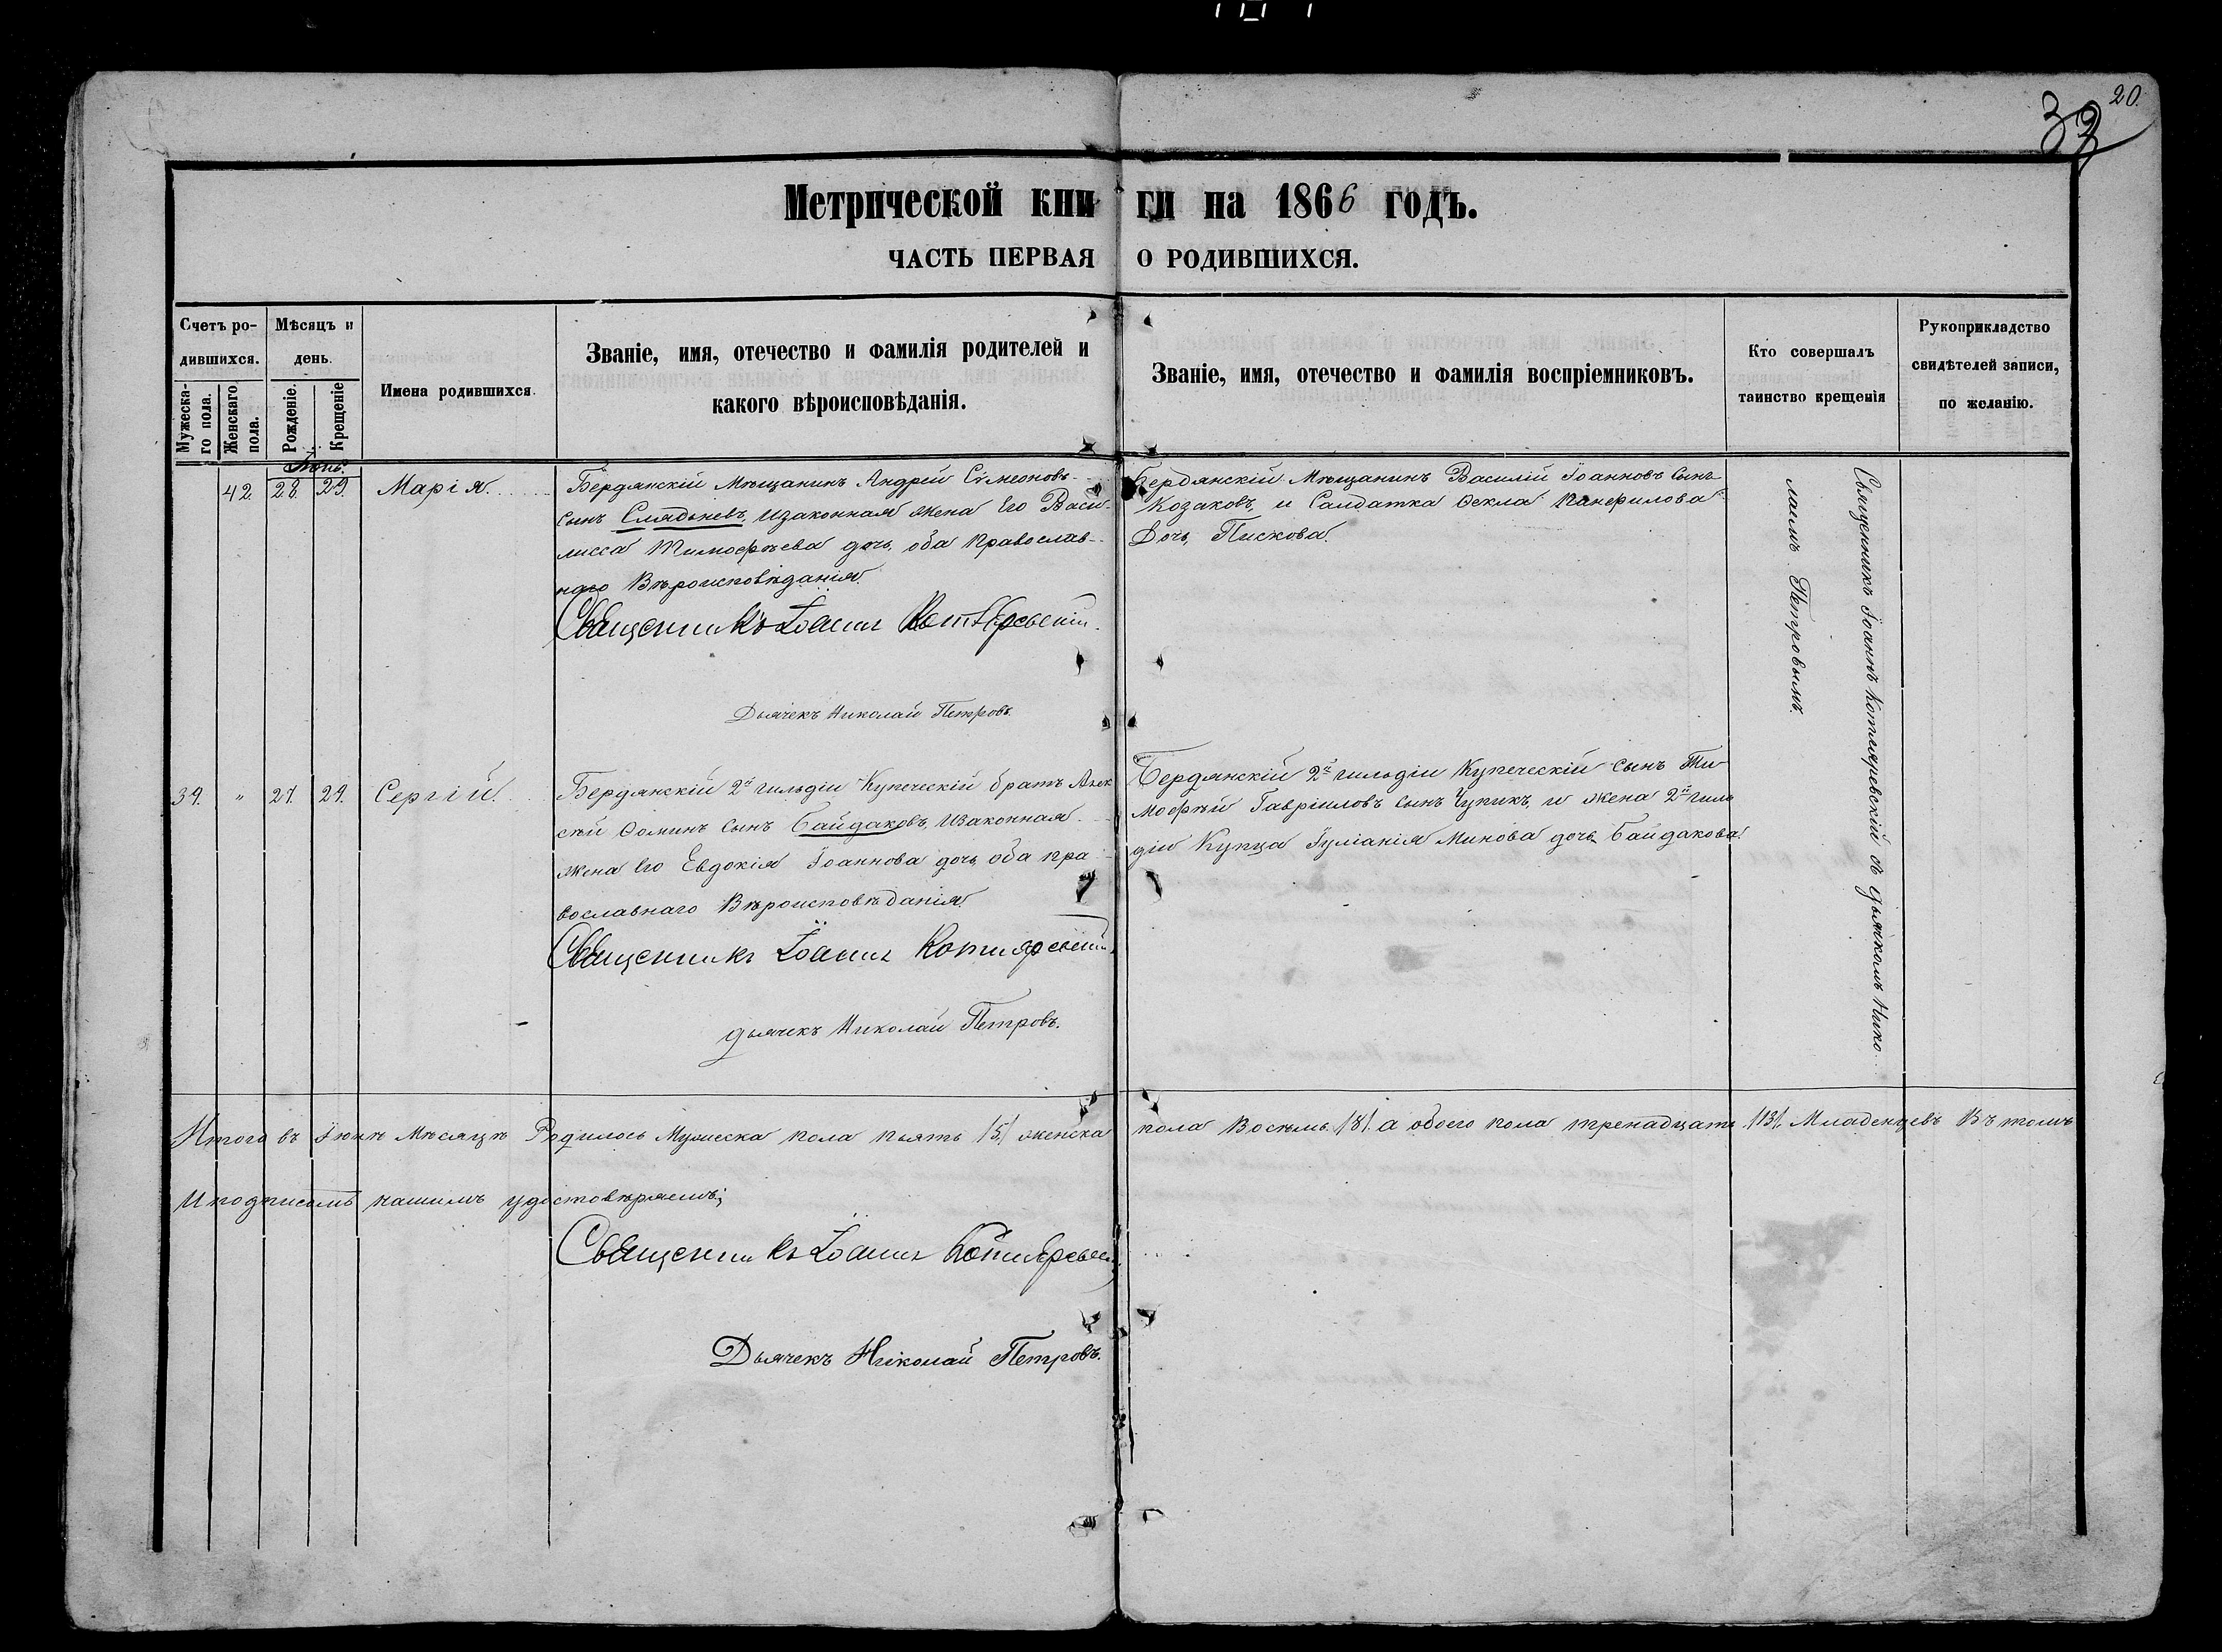 20.
32
Метрической книги на 1866 годъ.
ЧАСТЬ ПЕРВАЯ О РОДИВШИХСЯ.
Счетъ ро-
дившихся.
Мужеска-
го пола.
Женскаго
пола.
Мѣсяцъ и
день.
Рожденіе.
Крещеніе
Имена родившихся.
Званіе, имя, отечество и фамилія родителей и
какого вѣроисповѣданія.
Званіе, имя, отечество и фамилія воспріемниковъ.
Кто совершалъ
таинство крещенія
Рукоприкладство
свидѣтелей записи,
по желанію.
42. 28. 29. Марія.
Бердянскій Мѣщанинъ Андрей Сѵмеоновъ
сынъ Слядьневъ, изаконная жена Его Васи-
лисса Тимофѣева дочь, оба православ-
наго Вѣроисповѣданія.
Священникъ Іоаннъ Котляревскій.
Дьячекъ Николай Петровъ.
Бердянскій Мѣщанинъ Василій Іоанновъ Сынъ
Козаковъ, и Салдатка Өекла Панфилова
Дочь, Пискова.
Священникъ Іоаннъ Котляревскій съ дьячкомъ Нико
лаемъ Петровымъ.
39. " 27. 29. Сергій.
Бердянскій 2й гильдіи Купеческій братъ Алек
сѣй Ѳоминъ сынъ Байдаковъ, изаконная
жена его Евдокія Іоаннова дочь, оба пра
вославнаго Вѣроисповѣданія.
Священникъ Іоаннъ Котляревскій
Дьячекъ Николай Петровъ.
Бердянскій 2й гильдіи Купеческій сынъ Ти
мофѣй Гавріиловъ сынъ Чупикъ, и жена 2й гиль
діи Купца Іуліанія Минова дочь Байдакова.
Итого въ Іюнѣ Мѣсяцѣ Родилось Мужеска пола пьять /5/ женска пола Восемь /8/ а обоего пола тренадцать /13/, Младенцевъ Въ томъ
И подписомъ нашимъ удостовѣряемъ;
Священникъ Іоаннъ Котляревскій
Дьячекъ Николай Петровъ.